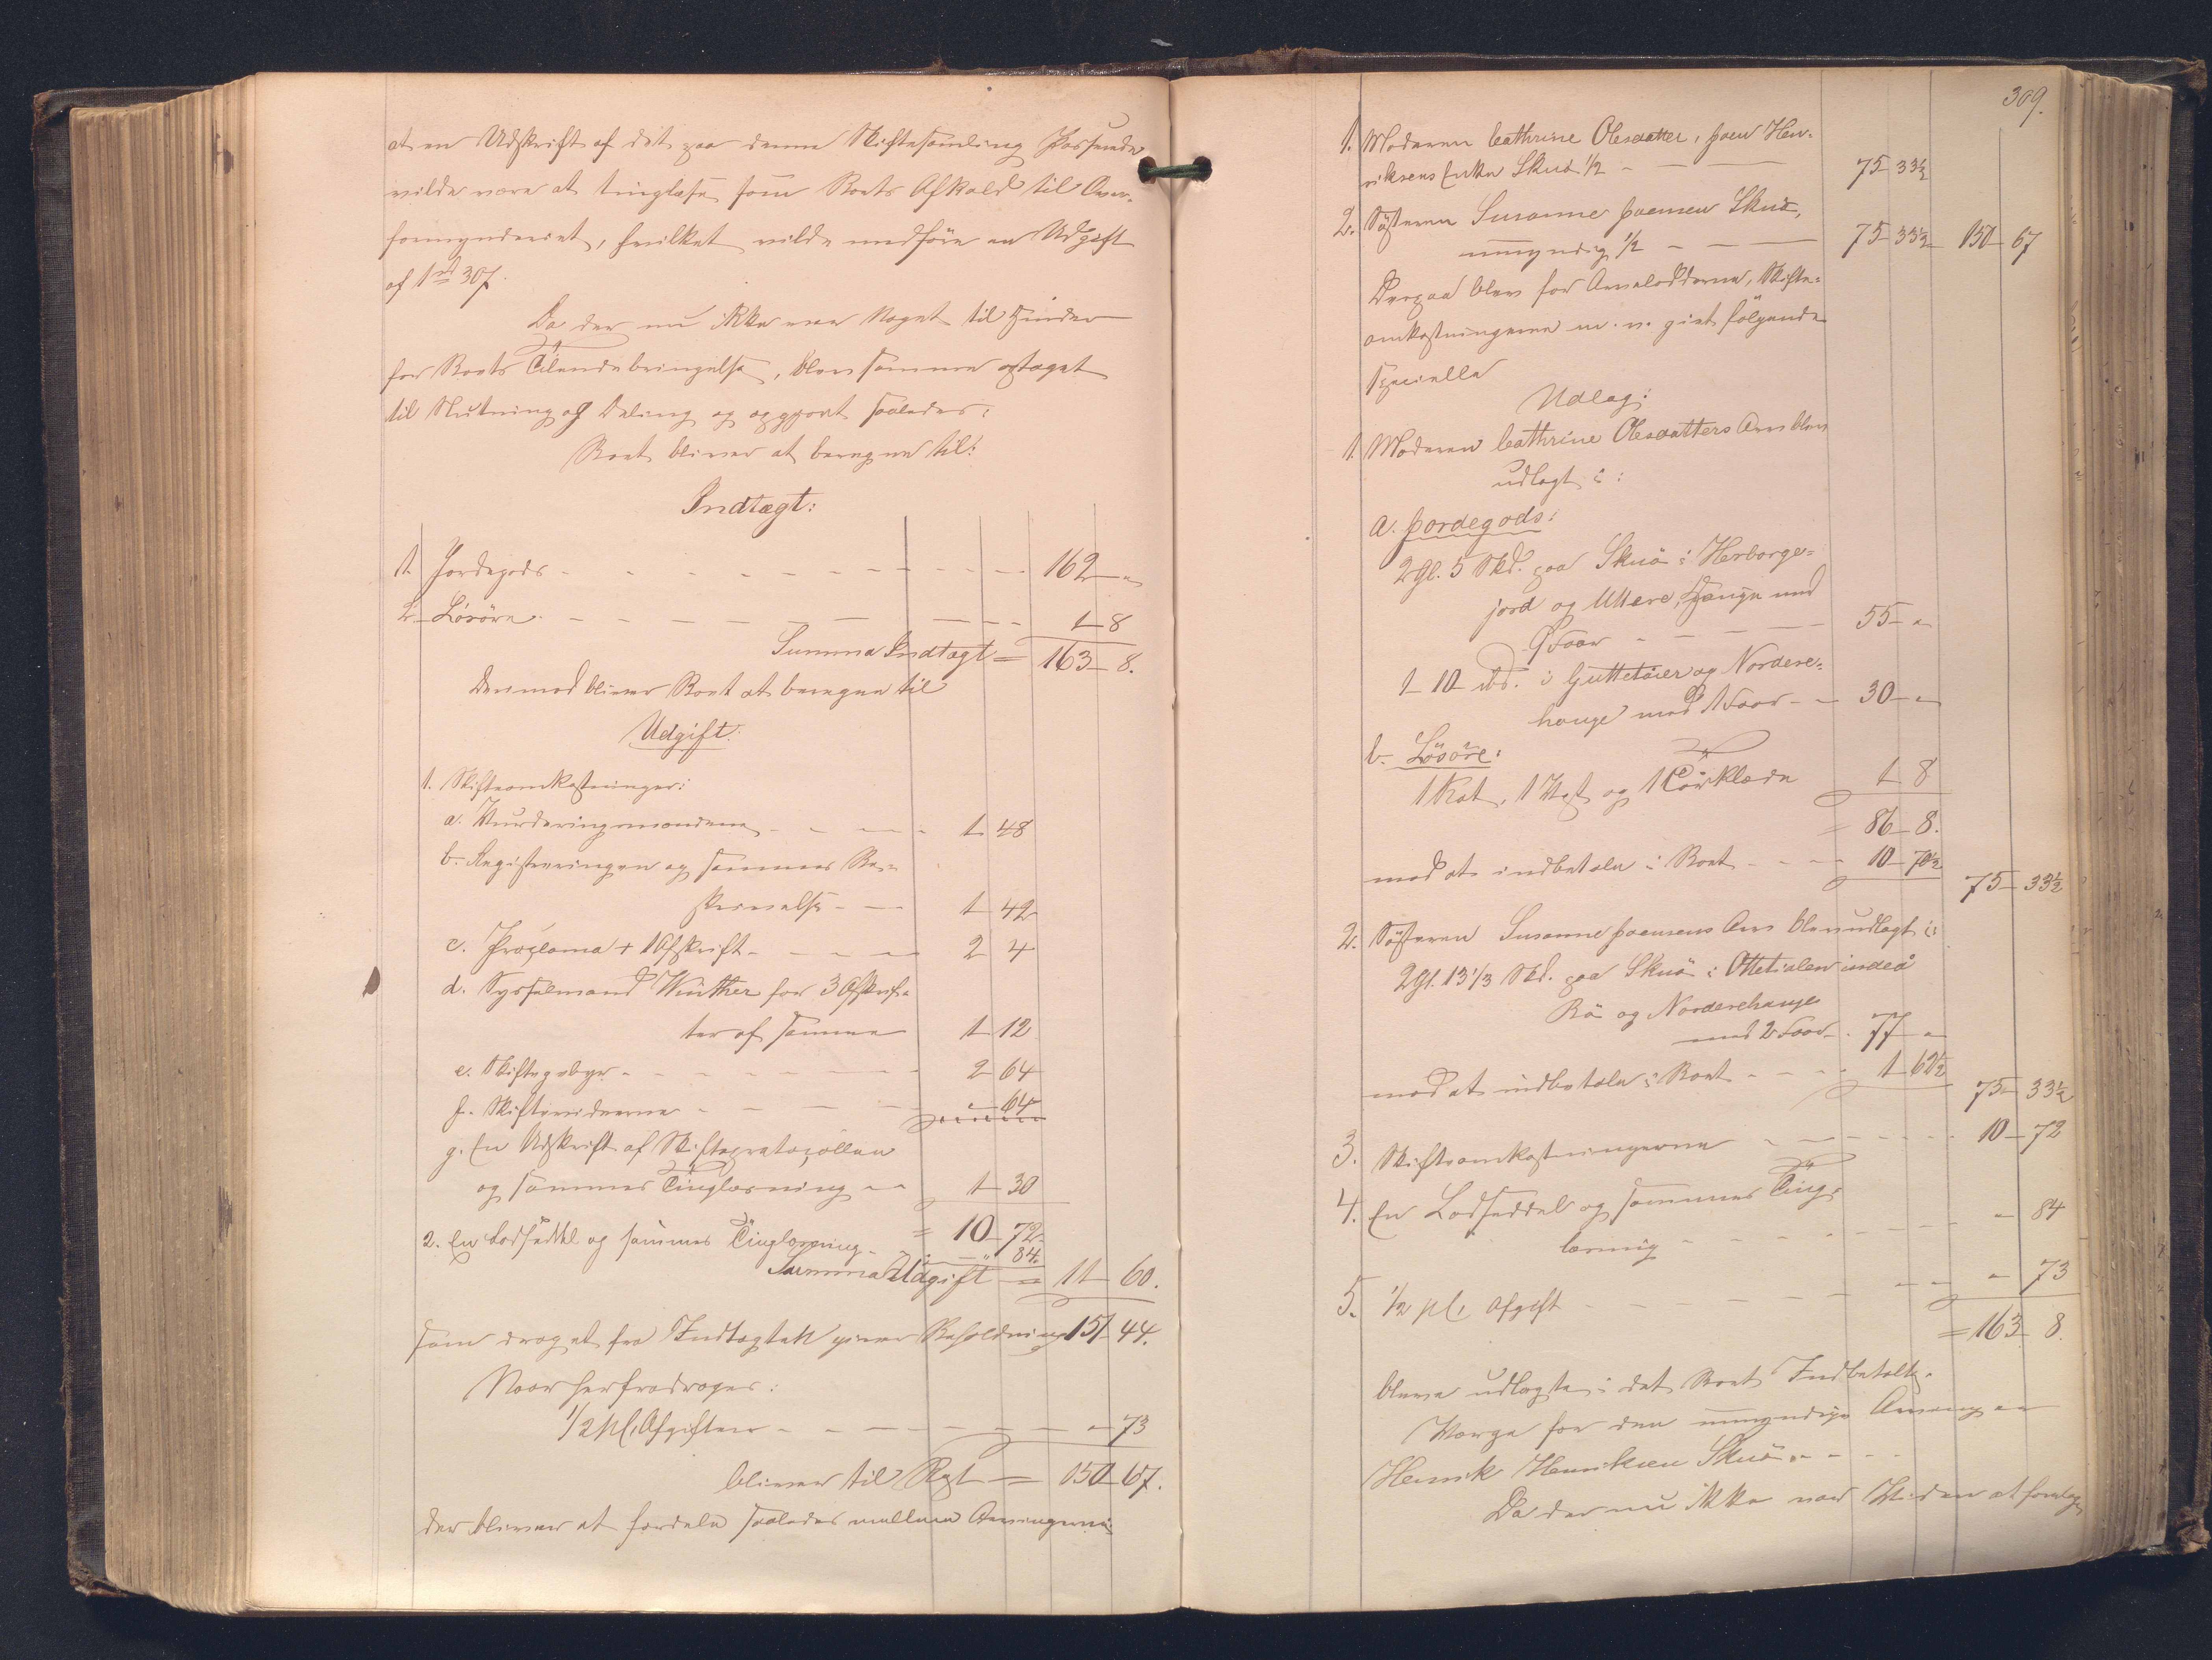 at en Udskrift af det paa denne Skiftesamling Passerede
vilde være at tinglæse som Boets Afkald til Over-
formynderiet, hvilket vilde medföre en Udgift
af 1 rd 30 s.
Da der nu ikke var Noget til Hinder
for Boets Tilendebringelse, blev samme optaget
til Slutning og Deling og opgjort saaledes:
Boet bliver at beregne til:
Indtægt:
1. Jordegods - - - 162 - "
2. Lösöre - - - 1 - 8
Summa Indtægt = 163 - 8.
Derimod bliver Boet at beregne til
Udgift:
1. Skifteomkostninger:
a. Vurderingsmændene - - - 1 - 48
b. Registreringen og sammes Be-
skrivelse - - 1 - 42
c. Proclama + 1 Afskrift - - - 2 - 4
d. Sysselmand Winther for 3 Afskrif-
ter af samme 1 - 12
e. Skiftegebyr - - - 2 - 64
f. Skiftevidnerne - - - " - 64
g. En Udskrift af Skifteprotocollen
og sammes Tinglæsning - - 1 - 30
= 10 - 72
2. En Lodseddel og sammes Tinglæsning - " 84.
Summa Udgift = 11 - 60.
som draget fra Indtægten giver Beholdning 151 - 44.
Naar herfra drages:
1/2 pCt Afgiften - - - " - 73
bliver til Rest = 150 - 67.
der bliver at fordele saaledes mellem Arvingerne:
309.
1. Moderen Cathrine Olesdatter, Joen Hen-
riksens Enke Skuö 1/2 - - 75 - 33 1/2
2. Sösteren Susanne Joensen Skuö,
umyndig 1/2 - - - 75 - 33 1/2 - 150 - 67
Derpaa blev for Arvelodderne, Skifte-
omkostningerne m. v. gjort fölgende
specielle
Udlag:
1. Moderen Cathrine Olesdatters Arv blev
udlagt i:
a. Jordegods:
2 Gl. 5 Skd. paa Skuö i Herborge-
jord og Uttere, Hauge med
Faar - - - 55 - "
1 - 10 ibd. i Guttetöier og Nordere-
hauge med 1 Faar - - 30 - "
b. Lösöre:
1 Kat, 1 Vest og 1 Törklæde 1 - 8
= 86 - 8.
mod at indbetale i Boet - - - 10 - 70 1/2
75 - 33 1/2
2. Sösteren Susanne Joensens Arv blev udlagt i:
2 Gl. 13 1/3 Skd. paa Skuö i Ottetialen indeå
Rö og Norderehauge
med 2 Faar - 77 - "
mod at indbetale i Boet - - - 1 - 62 1/2
75 - 33 1/2
3. Skifteomkostningerne - - - 10 - 72
4. En Lodseddel og sammes Ting-
læsning - - - " - 84
5. 1/2 pCt Afgift - - - " - 73
= 163 - 8.
bleve udlagte i det Boet Indbetalte.
Værge for den umyndige Arving er
Henrik Henriksen Skuö. - - -
Da der nu ikke var Videre at foretage